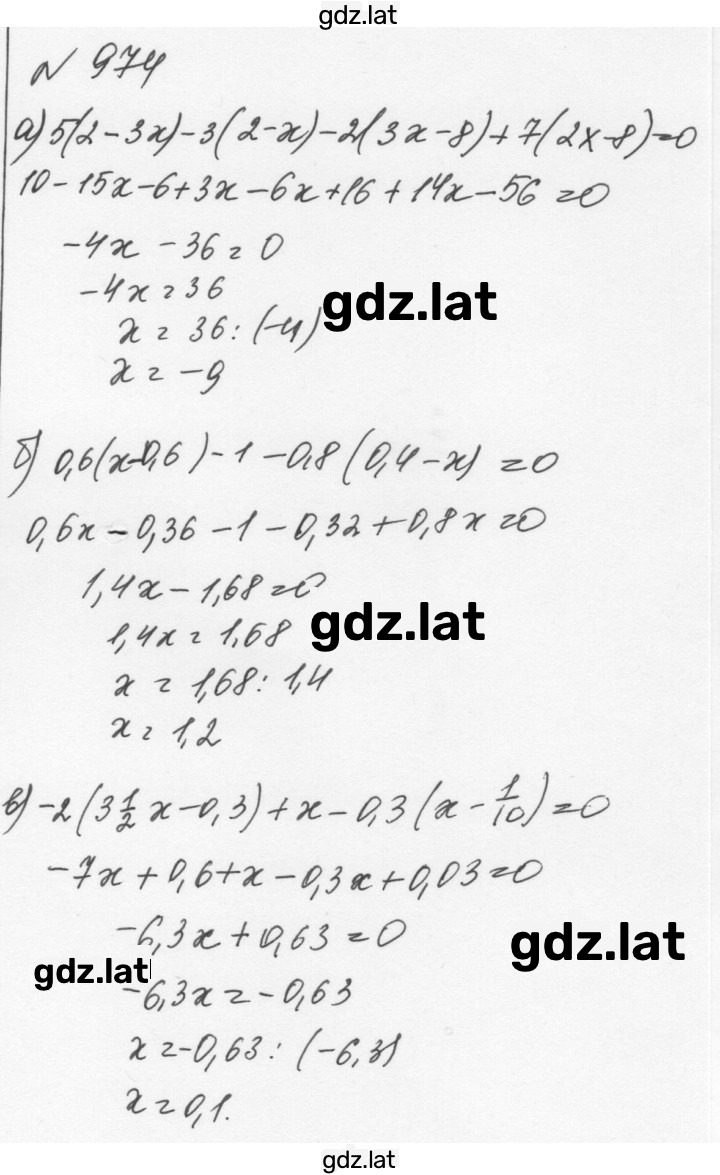 gdz.lat
№ 974
а) 5(2-3x)-3(2-x)-2(3x-8)+7(2x-8)=0
10-15x-6+3x-6x+16+14x-56=0
-4x-36=0
-4x=36
gdz.lat
x=36:(-4)
x=-9
б) 0,6(x-0,6)-1-0,8(0,4-x)=0
0,6x-0,36-1-0,32+0,8x=0
1,4x-1,68=0
1,4x=1,68
gdz.lat
x=1,68:1,4
x=1,2
в) -2(3 1/2 x-0,3)+x-0,3(x-1/10)=0
-7x+0,6+x-0,3x+0,03=0
-6,3x+0,63=0
gdz.lat
gdz.lat
-6,3x=-0,63
x=-0,63:(-6,3)
x=0,1.
gdz.lat